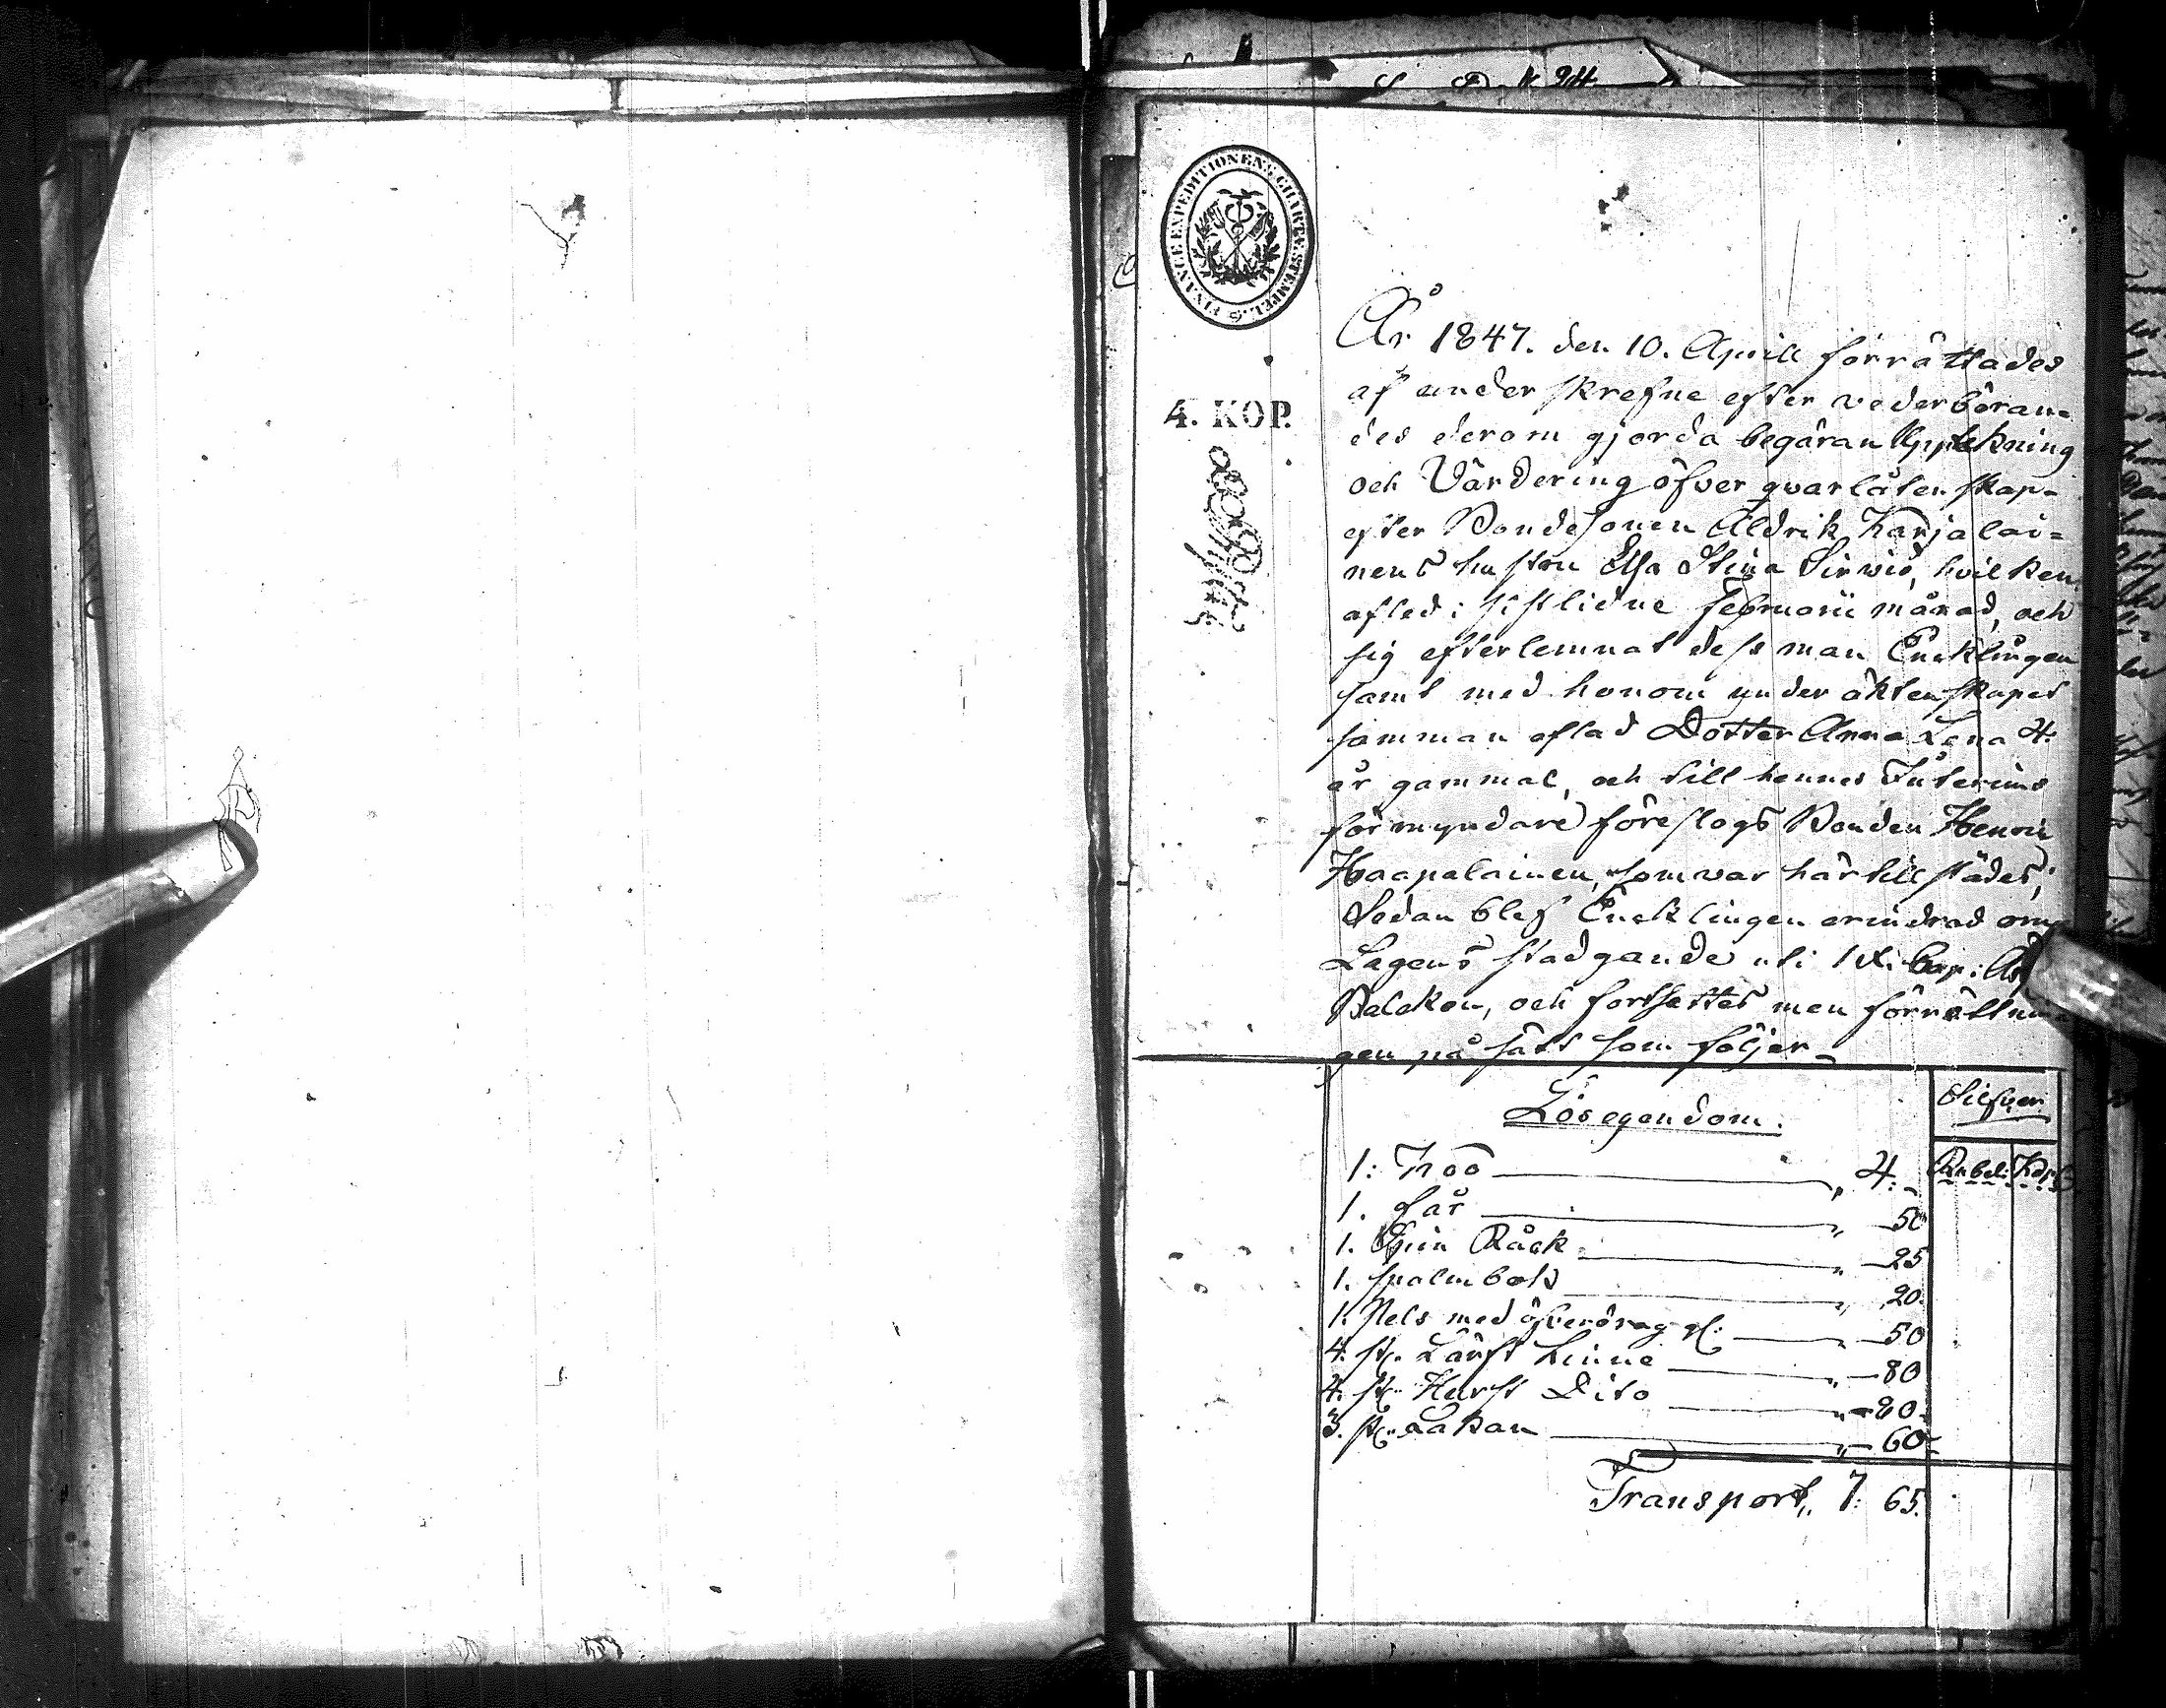 FINANCE EXPEDITIONENS CHARTÆ STEMPEL.
4. KOP.
År 1847. den 10. Aprill förrättades
af under skrefne efter vederböran=
des derom gjorda begäran Upptekning
och Värdering öfver qvarlåtenskap=
efter Bondesonen Aldrik Karjalai=
nens hustru Elsa Stina Sirviö, hvilken
afled i sistlidne Februarii månad, och
sig efterlemnat dess man Encklingen
samt med honom under äktenskapet
samman aflad Dotter Anna Lena 4.
år gammal, och till hennes Interims
förmyndare föreslogs Bonden Henric
Haapalainen, som var här till städes;
Sedan blef Encklingen erindrad om
Lagens stadgande uti
Balcken, och fortsettes men förrättnin
gen på sätt som följer_
Lösegendom.
Silfver
Rubel. Kop
1: Koo 4:
1. får 50
1. Spin Råck 25
1. psalmbok 20.
1. Pels med öfverdrag 50
4. st. Lärft Linne 80
4. st. Hurst Dito 80.
3. st. Lakan 60
Transport,, 7: 65.